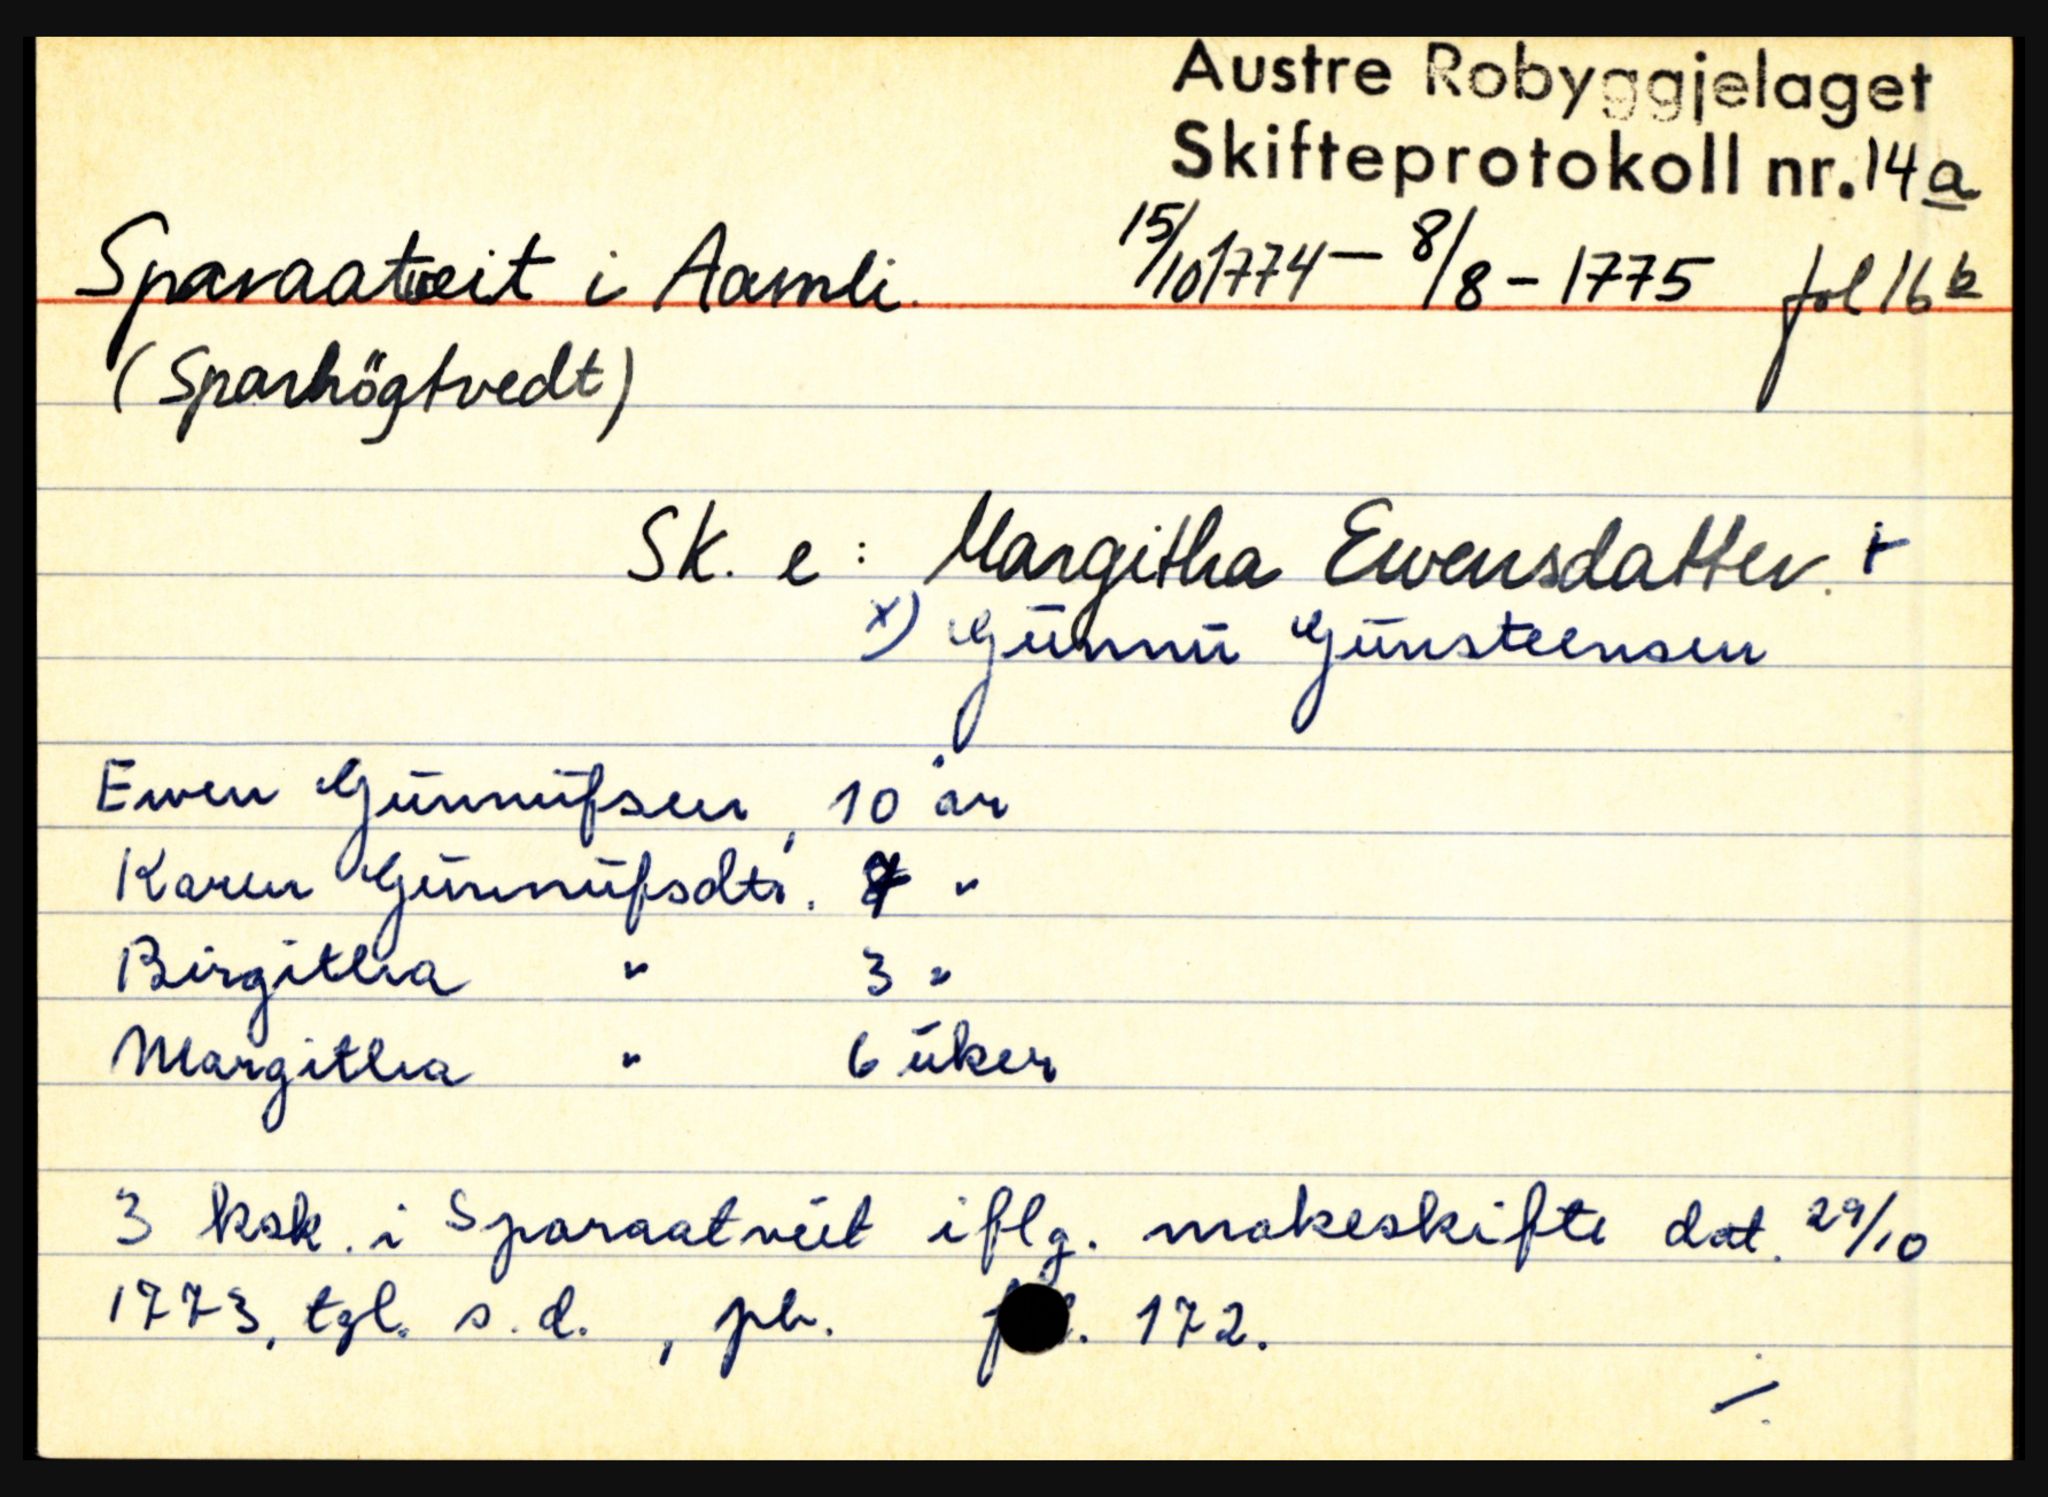 Austre Robyggjelaget
Skifteprotokoll nr. 14a
Sparaatveit i Aamli. 15/10 1774 – 8/8 – 1775 fol 16b
(Sparhögtvedt)
Sk. e: Margitha Ewensdatter. +
x) Gŭnnŭ Gŭnsteensen
Ewen Gŭnnŭfsen, 10 år
Karen Gŭnnŭfsdtr. "
Birgitha " 3 "
Margitha " 6 ŭker
3 ksk. i Sparaatveit iflg. makeskifte dat. 29/10
1773, tgl. s.d., pb. 172.